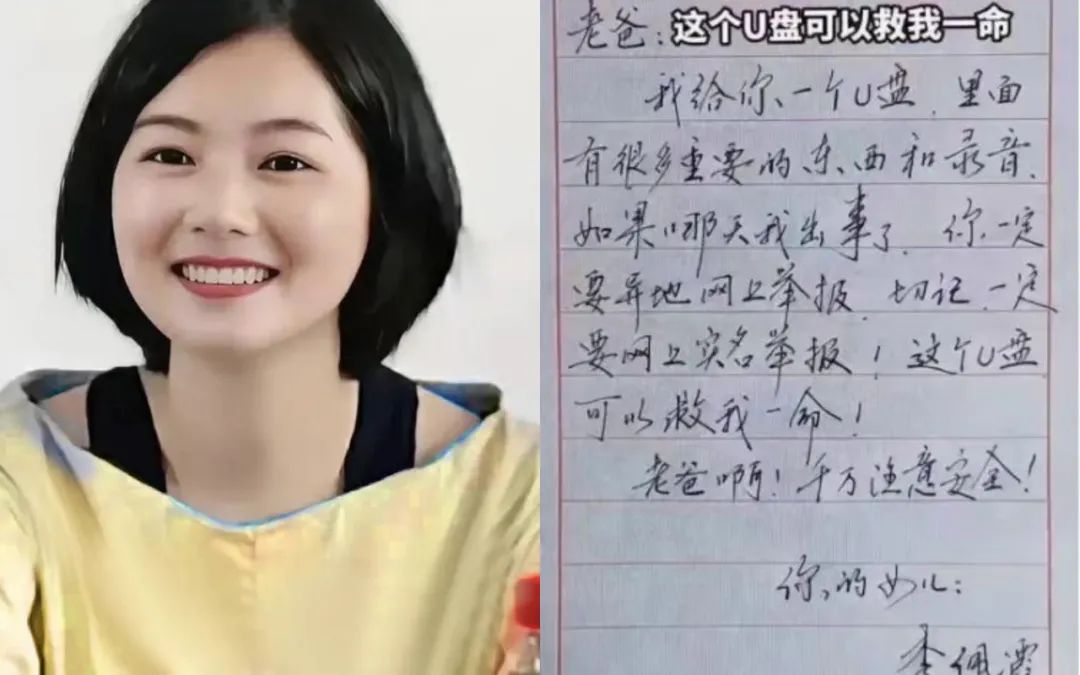 这个U盘可以救我一命
老爸:
我给你一个U盘,里面
有很多重要的东西和录音,
如果哪天我出事了,你一定
要异地网上举报,切记,一定
要网上实名举报!这个U盘
可以救我一命!
老爸啊!千万注意安全!
你的女儿:
李佩霞